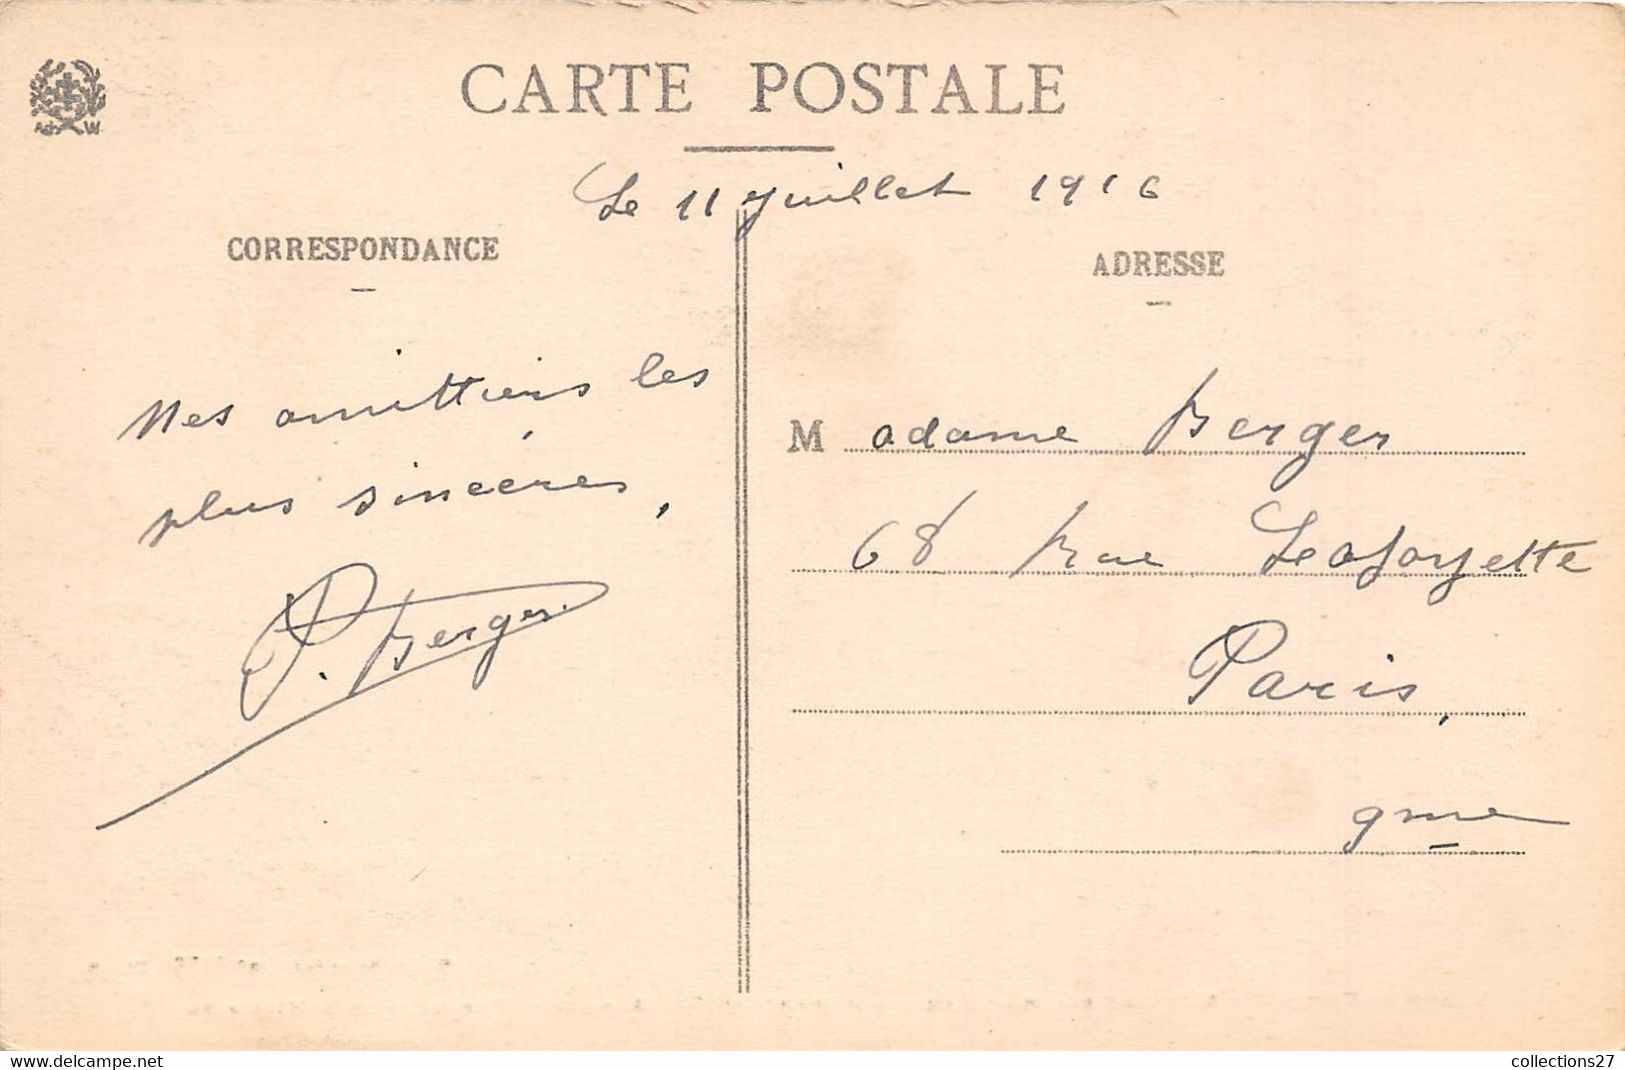 CARTE POSTALE
Le 11 juillet 1916
CORRESPONDANCE
ADRESSE
Mes amittiers les
plus sincères,
P. Berger.
Madame Berger
68 Rue Lafayette
Paris,
9me
www.delcampe.net
collections27